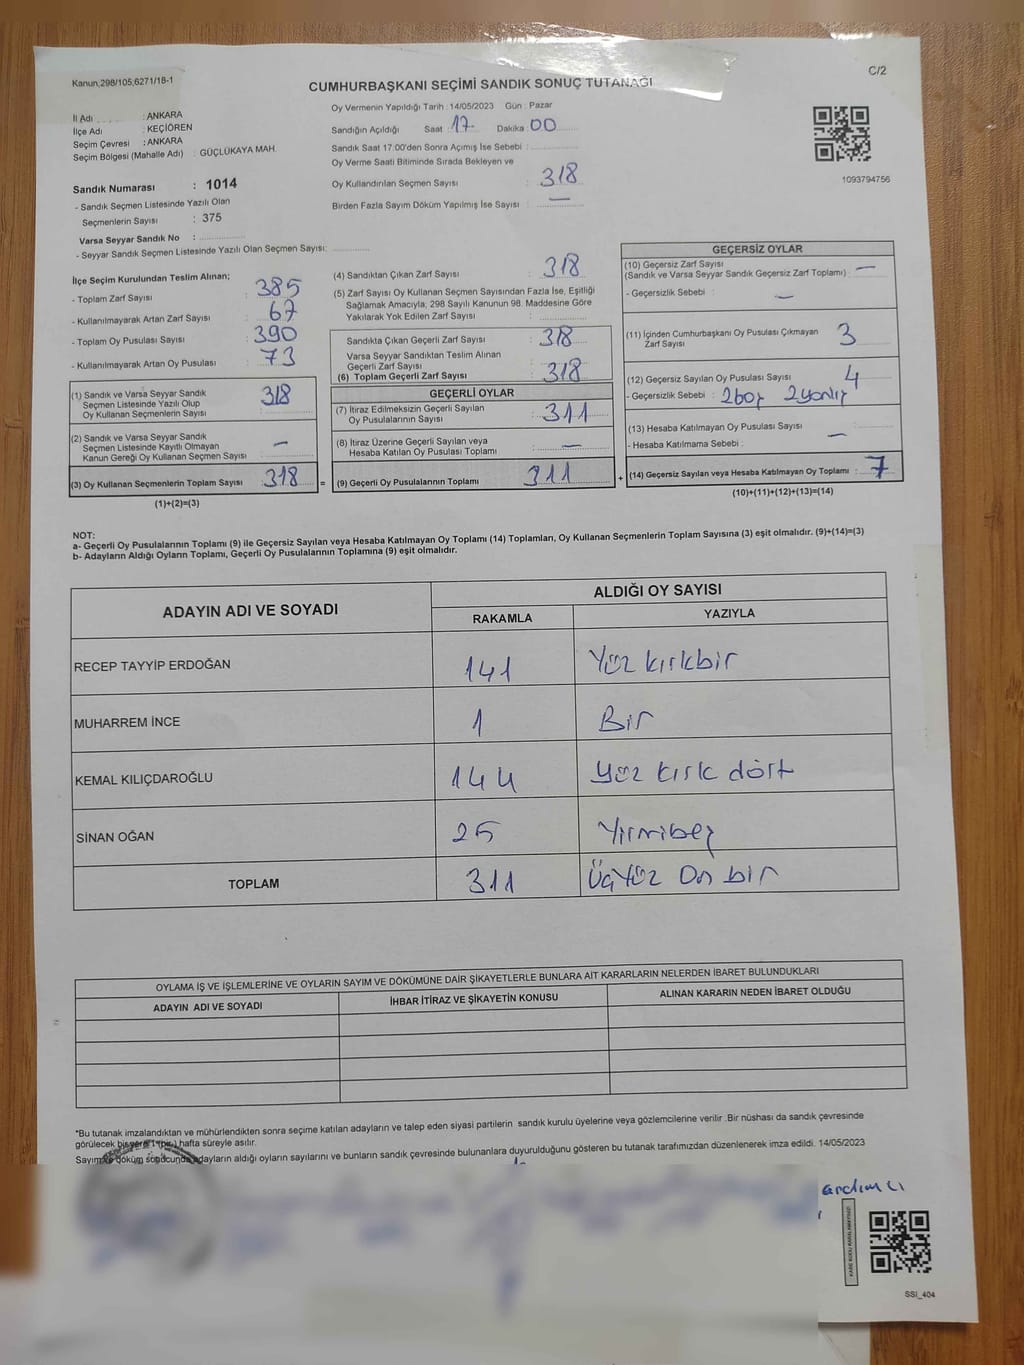 Kanun,298/105,6271/18-1
C/2
CUMHURBAŞKANI SEÇİMİ SANDIK SONUÇ TUTANAĞI
İl Adı : ANKARA
İlçe Adı : KEÇİÖREN
Seçim Çevresi : ANKARA
Seçim Bölgesi (Mahalle Adı) : GÜÇLÜKAYA MAH.
Sandık Numarası : 1014
- Sandık Seçmen Listesinde Yazılı Olan
Seçmenlerin Sayısı : 375
Varsa Seyyar Sandık No :
- Seyyar Sandık Seçmen Listesinde Yazılı Olan Seçmen Sayısı:
Oy Vermenin Yapıldığı Tarih : 14/05/2023 Gün : Pazar
Sandığın Açıldığı Saat : 17 Dakika : 00
Sandık Saat 17:00'den Sonra Açımış İse Sebebi :
Oy Verme Saati Bitiminde Sırada Bekleyen ve
Oy Kullandırılan Seçmen Sayısı : 318
Birden Fazla Sayım Döküm Yapılmış İse Sayısı : —
1093794756
İlçe Seçim Kurulundan Teslim Alınan;
- Toplam Zarf Sayısı : 385
- Kullanılmayarak Artan Zarf Sayısı : 67
- Toplam Oy Pusulası Sayısı : 390
- Kullanılmayarak Artan Oy Pusulası : 73
(1) Sandık ve Varsa Seyyar Sandık
Seçmen Listesinde Yazılı Olup
Oy Kullanan Seçmenlerin Sayısı : 318
(2) Sandık ve Varsa Seyyar Sandık
Seçmen Listesinde Kayıtlı Olmayan
Kanun Gereği Oy Kullanan Seçmen Sayısı : —
(3) Oy Kullanan Seçmenlerin Toplam Sayısı : 318 =
(1)+(2)=(3)
(4) Sandıktan Çıkan Zarf Sayısı : 318
(5) Zarf Sayısı Oy Kullanan Seçmen Sayısından Fazla İse, Eşitliği
Sağlamak Amacıyla, 298 Sayılı Kanunun 98. Maddesine Göre
Yakılarak Yok Edilen Zarf Sayısı :
Sandıkta Çıkan Geçerli Zarf Sayısı : 318
Varsa Seyyar Sandıktan Teslim Alınan
Geçerli Zarf Sayısı
(6) Toplam Geçerli Zarf Sayısı : 318
GEÇERLİ OYLAR
(7) İtiraz Edilmeksizin Geçerli Sayılan
Oy Pusulalarının Sayısı : 311
(8) İtiraz Üzerine Geçerli Sayılan veya
Hesaba Katılan Oy Pusulası Toplamı : —
(9) Geçerli Oy Pusulalarının Toplamı : 311 +
GEÇERSİZ OYLAR
(10) Geçersiz Zarf Sayısı
(Sandık ve Varsa Seyyar Sandık Geçersiz Zarf Toplamı) : —
- Geçersizlik Sebebi : —
(11) İçinden Cumhurbaşkanı Oy Pusulası Çıkmayan
Zarf Sayısı : 3
(12) Geçersiz Sayılan Oy Pusulası Sayısı : 4
- Geçersizlik Sebebi : 2boş 2yanlış
(13) Hesaba Katılmayan Oy Pusulası Sayısı : —
- Hesaba Katılmama Sebebi :
(14) Geçersiz Sayılan veya Hesaba Katılmayan Oy Toplamı : 7
(10)+(11)+(12)+(13)=(14)
NOT:
a- Geçerli Oy Pusulalarının Toplamı (9) ile Geçersiz Sayılan veya Hesaba Katılmayan Oy Toplamı (14) Toplamları, Oy Kullanan Seçmenlerin Toplam Sayısına (3) eşit olmalıdır. (9)+(14)=(3)
b- Adayların Aldığı Oyların Toplamı, Geçerli Oy Pusulalarının Toplamına (9) eşit olmalıdır.
ADAYIN ADI VE SOYADI
ALDIĞI OY SAYISI
RAKAMLA YAZIYLA
RECEP TAYYİP ERDOĞAN 141 Yüz kırkbir
MUHARREM İNCE 1 Bir
KEMAL KILIÇDAROĞLU 144 Yüz kırk dört
SİNAN OĞAN 25 Yirmibeş
TOPLAM 311 Üçyüz On bir
OYLAMA İŞ VE İŞLEMLERİNE VE OYLARIN SAYIM VE DÖKÜMÜNE DAİR ŞİKAYETLERLE BUNLARA AİT KARARLARIN NELERDEN İBARET BULUNDUKLARI
ADAYIN ADI VE SOYADI İHBAR İTİRAZ VE ŞİKAYETİN KONUSU ALINAN KARARIN NEDEN İBARET OLDUĞU
*Bu tutanak imzalandıktan ve mühürlendikten sonra seçime katılan adayların ve talep eden siyasi partilerin sandık kurulu üyelerine veya gözlemcilerine verilir .Bir nüshası da sandık çevresinde
görülecek bir yere 1 (bir) hafta süreyle asılır.
Sayım ve döküm sonucunda adayların aldığı oyların sayılarını ve bunların sandık çevresinde bulunanlara duyurulduğunu gösteren bu tutanak tarafımızdan düzenlenerek imza edildi. 14/05/2023
ardımcı
SSI_404